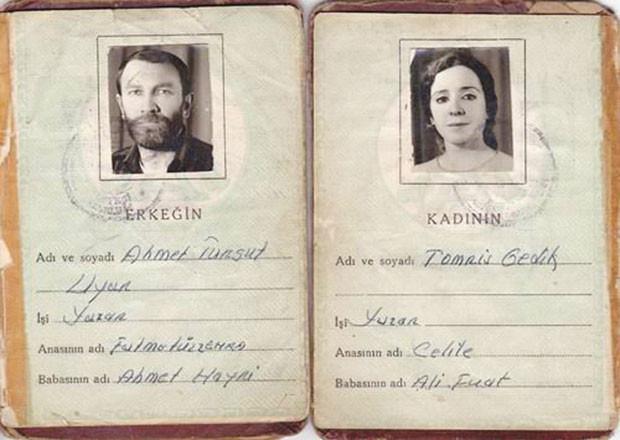 ERKEĞİN
Adı ve soyadı Ahmet Turgut
Uyar
İşi Yazar
Anasının adı Fatmatüzzehra
Babasının adı Ahmet Hayri
KADININ
Adı ve soyadı Tomris Gedik
İşi Yazar
Anasının adı Celile
Babasının adı Ali Fuat